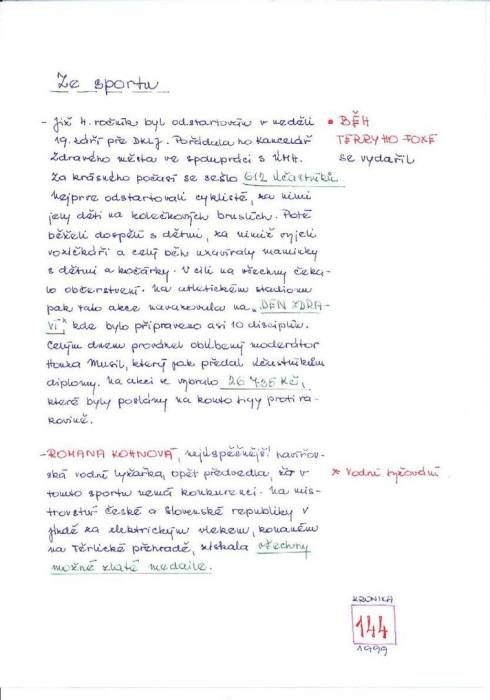 Ze sportu
- Již 4. ročník byl odstartován v neděli
19. září pře DKLJ. Pořádala ho Kancelář
Zdravého města ve spolupráci s ÚMH.
Za krásného počasí se sešlo 612 účastníků
nejprve odstartovali cyklisté, za nimi
jely děti na kolečkových bruslích. Poté
běželi dospělí s dětmi, za nimiž vyjeli
vozíčkáři a celý běh uzavíraly maminky
s dětmi a kočárky. V cíli na všechny čeka-
lo občerstvení. Na atletickém stadionu
pak tato akce navazovala na „DEN ZDRA-
VÍ" kde bylo připraveno asi 10 disciplín.
Celým dnem provázel oblíbený moderátor
Honza Musil, který pak předal účastníkům
diplomy. Na akci se vybralo 26 735 Kč,
které byly poslány na konto Ligy proti ra-
kovině.
• BĚH
TERRYHO FOXE
se vydařil
- ROMANA KOHNOVÁ, nejúspěšnější havířov-
ská vodní lyžařka, opět předvedla, že v
tomto sportu nemá konkurenci. Na mis-
trovství České a Slovenské republiky v
jízdě za elektrickým vlekem, konaném
na Těrlické přehradě, získala všechny
možné zlaté medaile.
* Vodní lyžování
KRONIKA
144
1999